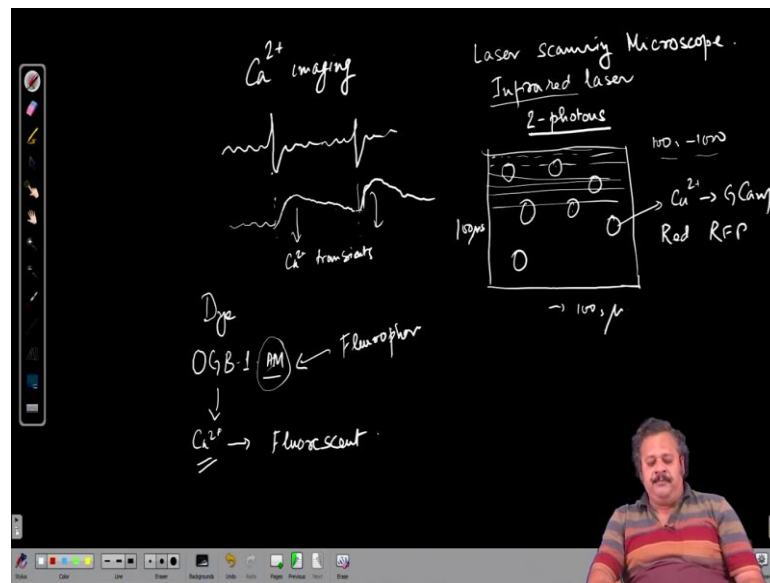 Ca2+ imaging
Ca2+ transients
Dye
OGB-1 AM ← Fluorophor
Ca2+ → Fluorescent.
Laser scanning Microscope.
Infrared laser
2-photons
100, -1000
100 μs
→ 100, μ
Ca2+ → GCamp
Red RFP
Stylus
Color
Line
Eraser
Backgrounds
Undo
Redo
Pages
Previous
Next
Erase